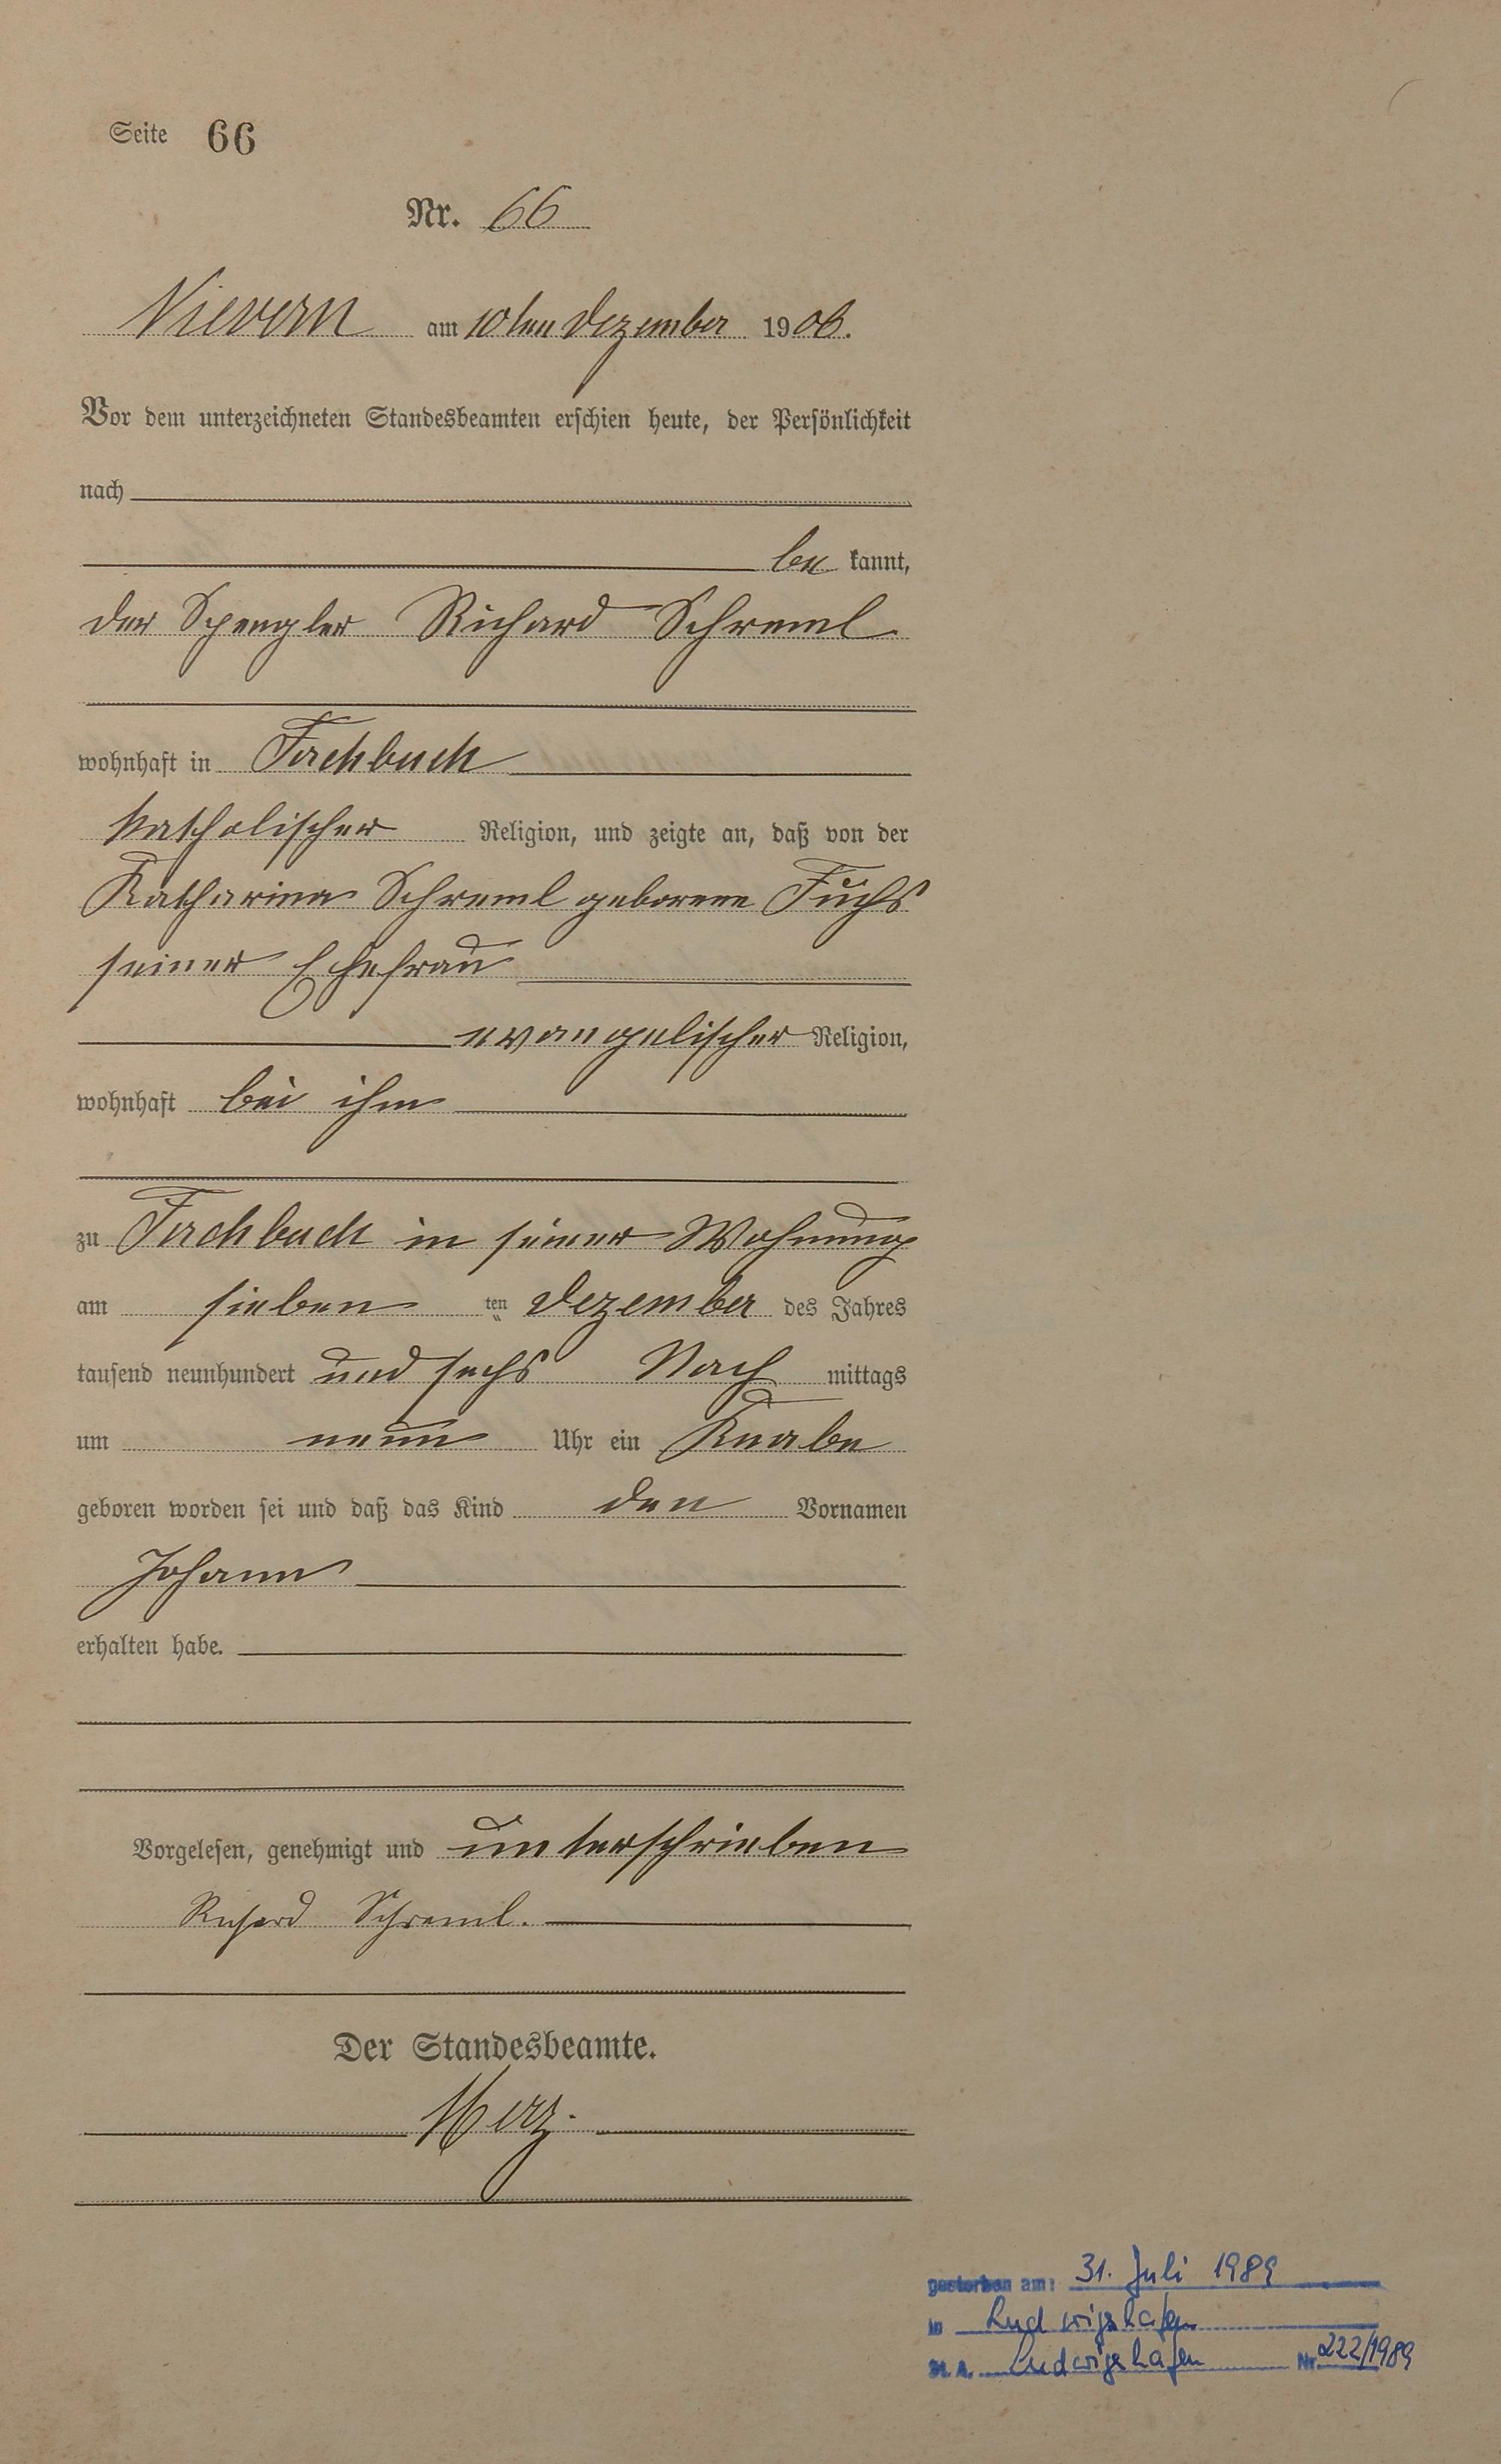 Seite 66
Nr. 66
Nievern am 10ten Dezember 1906.
Vor dem unterzeichneten Standesbeamten erschien heute, der Persönlichkeit
nach
be kannt,
der Spengler Richard Schreml
wohnhaft in Fachbach
katholischer Religion, und zeigte an, daß von der
Katharina Schreml geborene Fuchs
seiner Ehefrau
evangelischer Religion,
wohnhaft bei ihm
zu Fachbach in seiner Wohnung
am sieben ten Dezember des Jahres
tausend neunhundert und sechs Nach mittags
um neun Uhr ein Knabe
geboren worden sei und daß das Kind den Vornamen
Johann
erhalten habe.
Vorgelesen, genehmigt und unterschrieben
Richard Schreml.
Der Standesbeamte.
Herz.
gestorben am: 31. Juli 1989
in Ludwigshafen
St. A. Ludwigshafen Nr. 222/1989